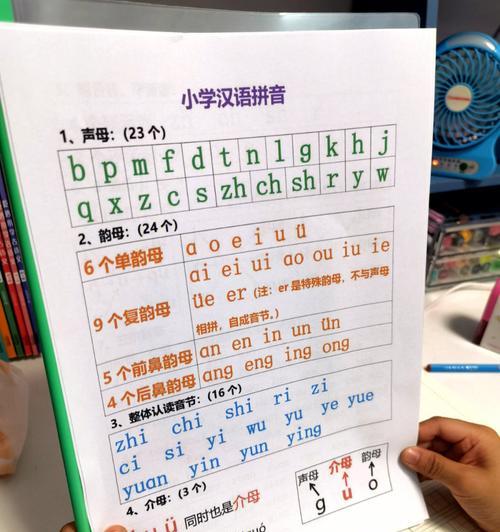 小学汉语拼音
1、声母：（23 个）
b p m f d t n l g k h j
q x z c s zh ch sh r y w
2、韵母：（24 个）
6 个单韵母 ɑ o e i u ü
9 个复韵母 ɑi ei ui ɑo ou iu ie
üe er（注：er 是特殊韵母，不与声母
相拼，自成音节。）
5 个前鼻韵母 ɑn en in un ün
4 个后鼻韵母 ɑng eng ing ong
3、整体认读音节：（16 个）
zhi chi shi ri zi
ci si yi wu yu ye yue
yuɑn yin yun ying
4、介母：（3 个）
ü 同时也是介母
声母 介母 韵母
g u o